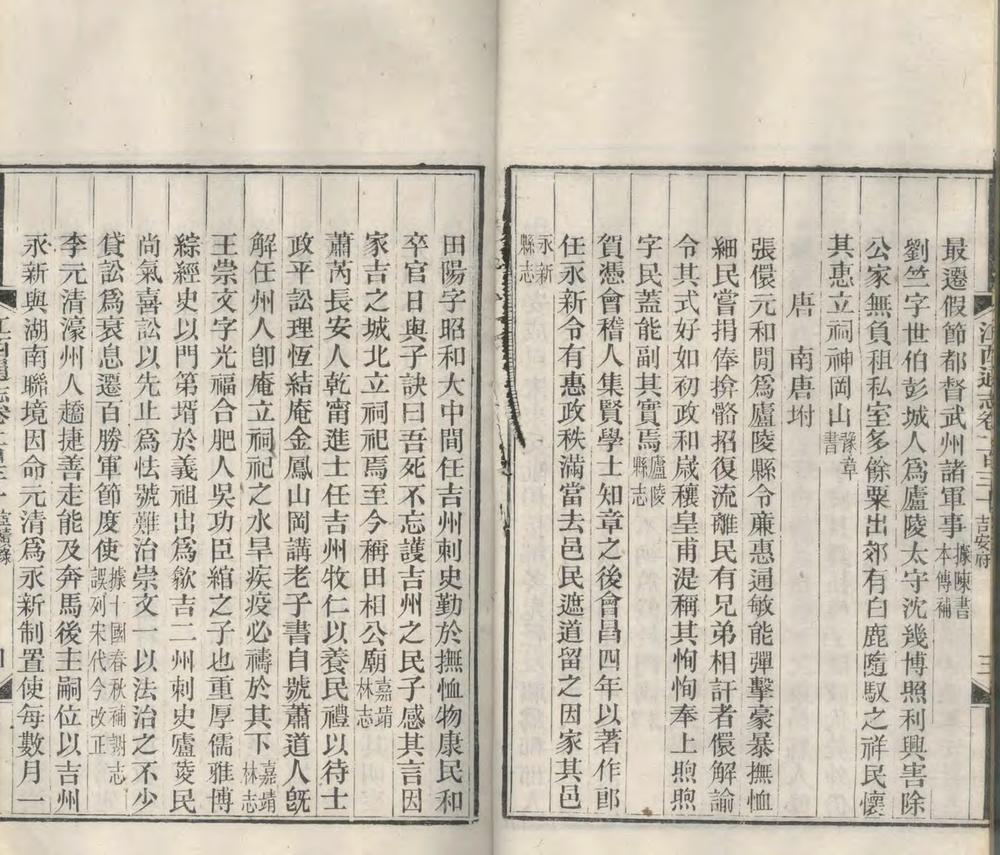 最遷假節都督武州諸軍事據陳書本傳補
劉竺字世伯彭城人為廬陵太守沈幾博照利興害除
公家無負租私室多餘粟出郊有白鹿隨馭之祥民懷
其惠立祠神岡山豫章書
唐　南唐坿
張儇元和閒為廬陵縣令廉惠通敏能彈擊豪暴撫恤
細民嘗捐俸揜骼招復流離民有兄弟相訐者儇解諭
令其式好如初政和歲穰皇甫湜稱其恂恂奉上煦煦
字民蓋能副其實焉廬陵縣志
賀憑會稽人集賢學士知章之後會昌四年以著作郎
任永新令有惠政秩滿當去邑民遮道留之因家其邑
永新縣志
田陽字昭和大中間任吉州刺史勤於撫恤物康民和
卒官日與子訣曰吾死不忘護吉州之民子感其言因
家吉之城北立祠祀焉至今稱田相公廟嘉靖林志
蕭芮長安人乾甯進士任吉州牧仁以養民禮以待士
政平訟理恆結庵金鳳山岡講老子書自號蕭道人旣
解任州人卽庵立祠祀之水旱疾疫必禱於其下嘉靖林志
王崇文字光福合肥人吳功臣綰之子也重厚儒雅博
綜經史以門第壻於義祖出為歙吉二州刺史廬陵民
尚氣喜訟以先止為怯號難治崇文一以法治之不少
貸訟爲衰息遷百勝軍節度使據十國春秋補謝志誤列宋代今改正
李元清濠州人趫捷善走能及奔馬後主嗣位以吉州
永新與湖南聯境因命元清為永新制置使每數月一